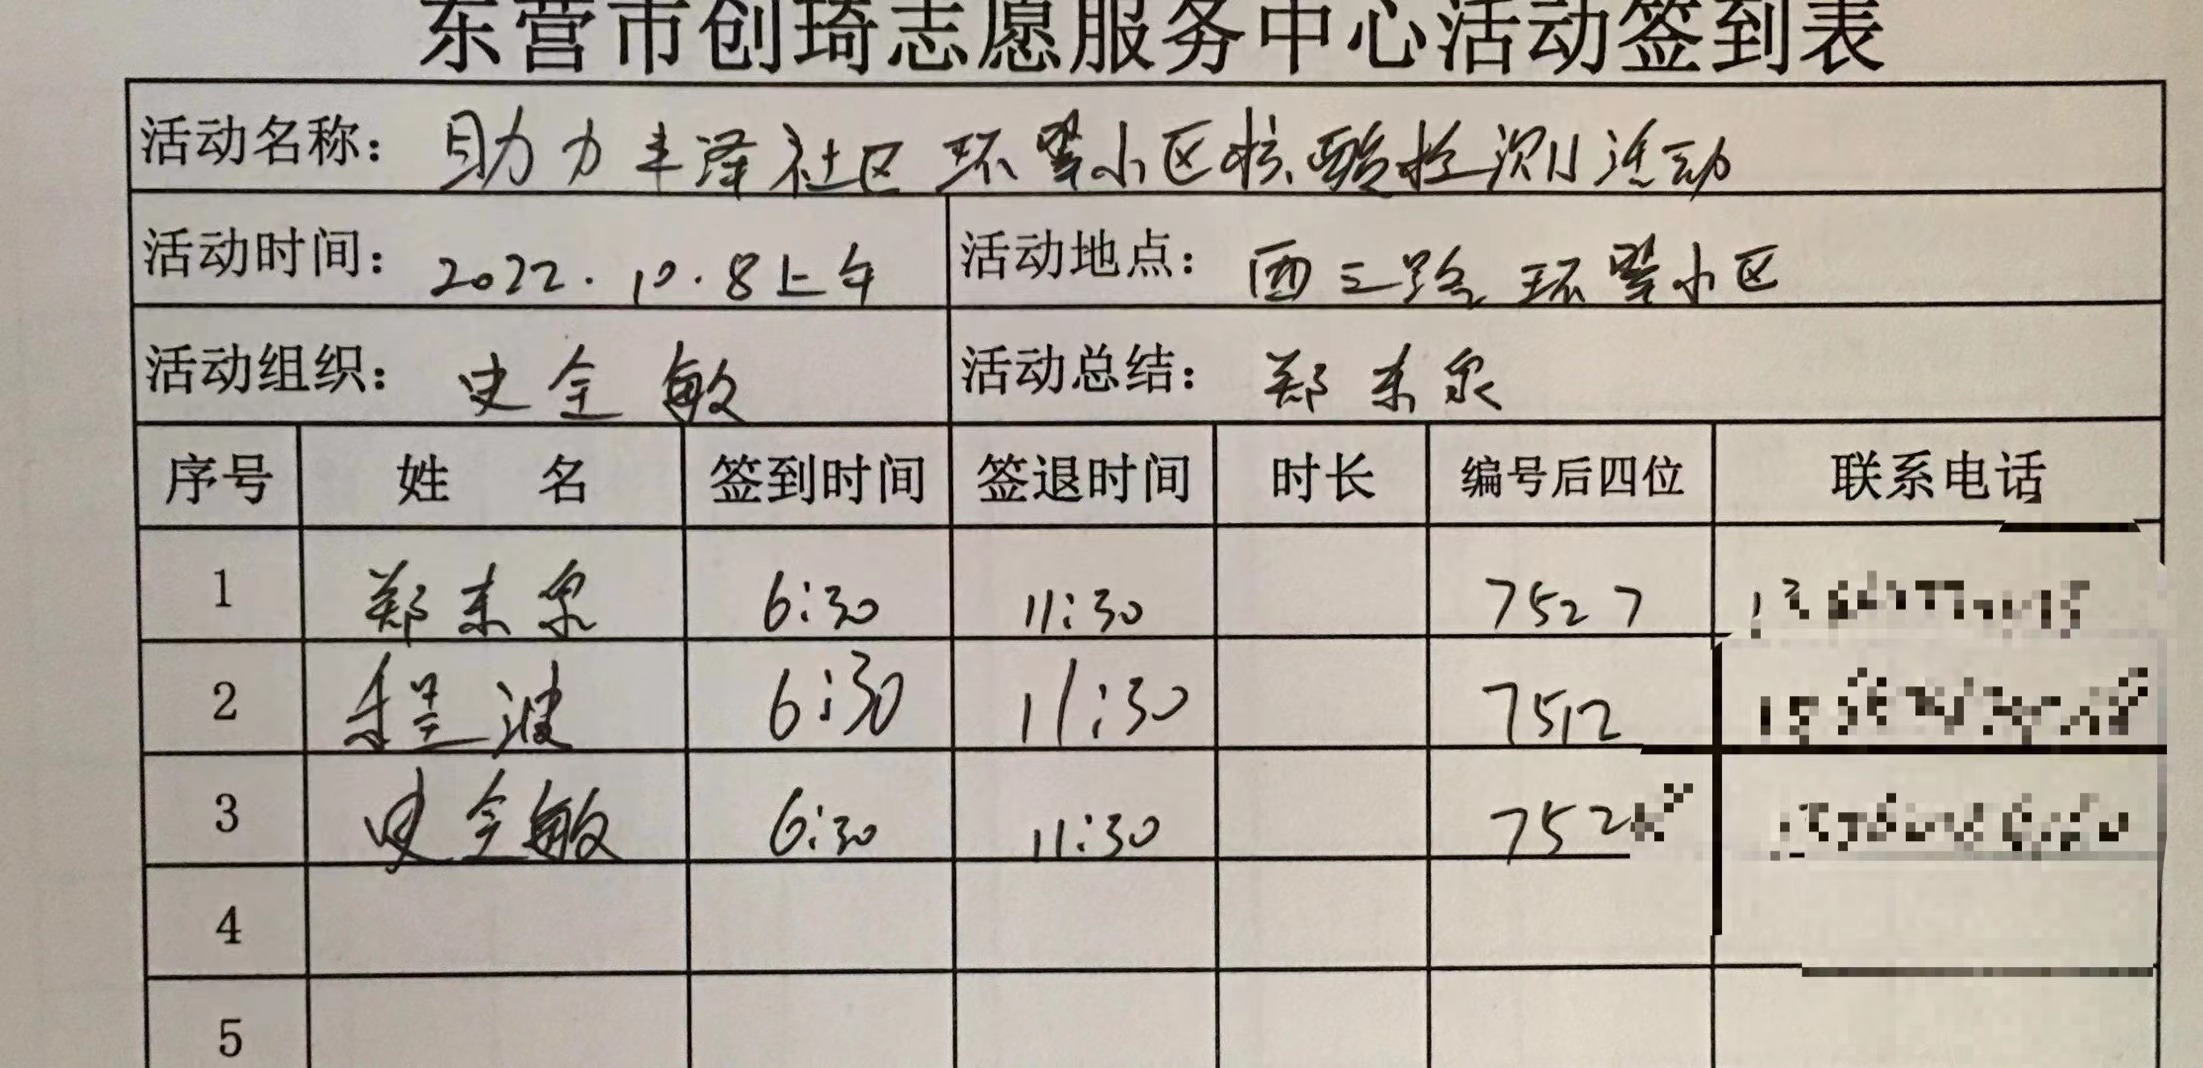 东营市创琦志愿服务中心活动签到表
活动名称：助力丰泽社区环翠小区核酸检测活动
活动时间：2022.10.8上午 活动地点：西三路环翠小区
活动组织：史全敏 活动总结：郑来泉
序号 姓名 签到时间 签退时间 时长 编号后四位 联系电话
1 郑来泉 6:30 11:30 7527
2 程波 6:30 11:30 7512
3 史全敏 6:30 11:30 752
4
5